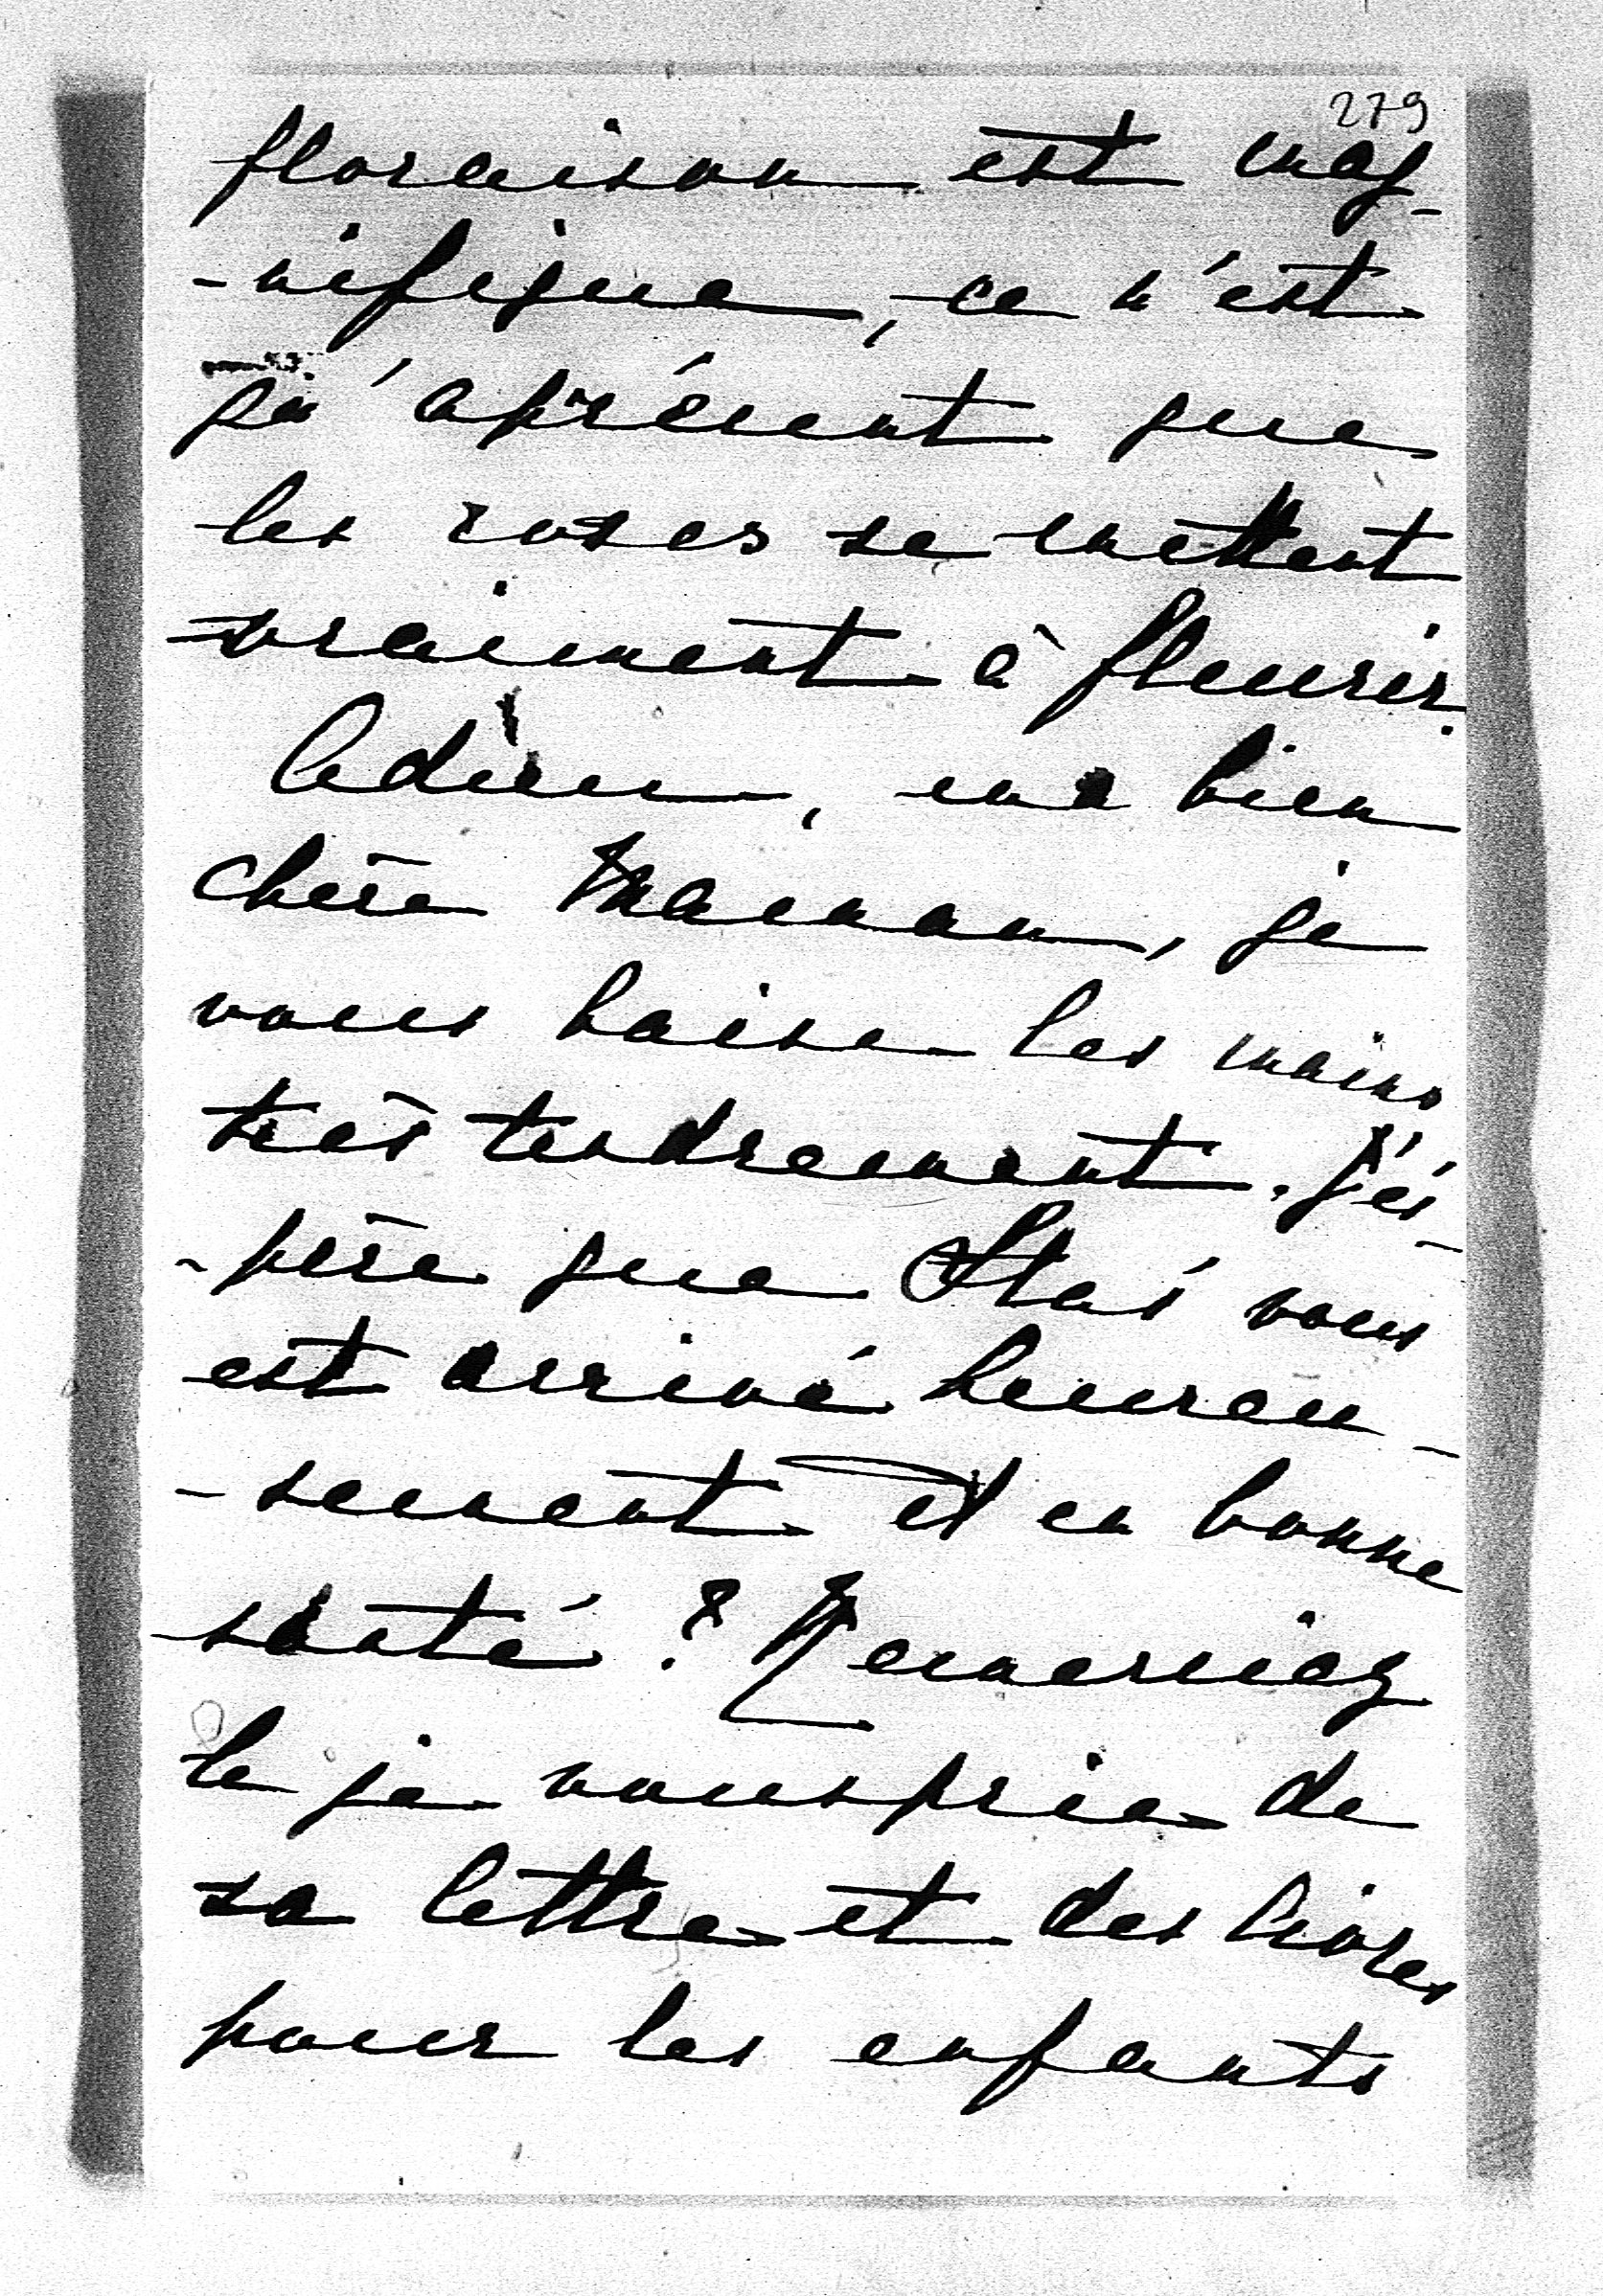 279
floraison est mag-
-nifique, ce n'est
qu'aprésent que
les roses se mettent
vraiment à fleurir.
Adieu, ma bien
chère Maman, je
vous baise les mains
très tendrement. J'es-
-père que Staś vous
est arrivé heureu-
-sement et en bonne
santé? Remerciez
le je vous prie de
sa lettre et des livres
pour les enfants